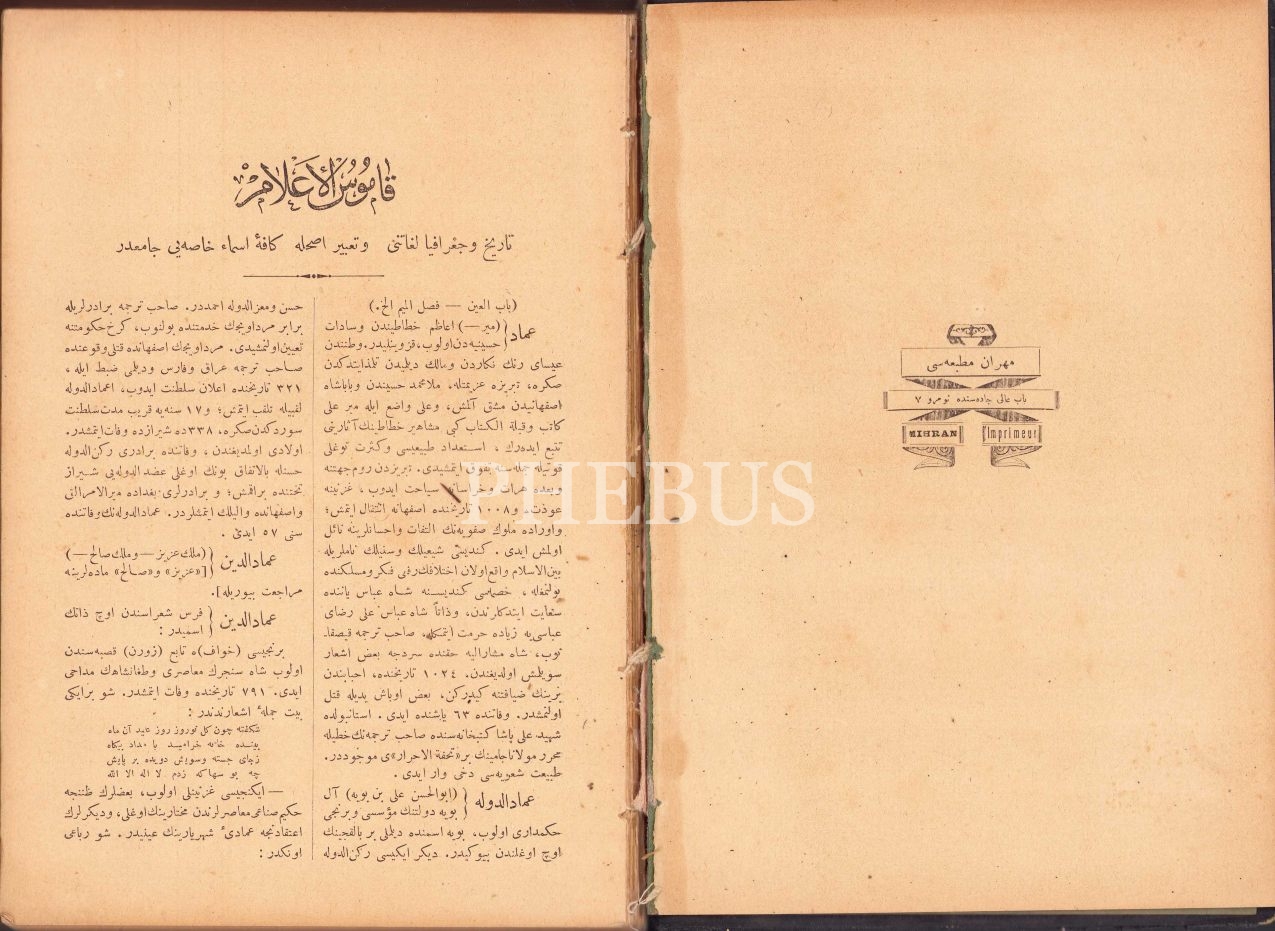 مهران مطبعه‌سی
باب عالی جاده‌سنده نومرو ۷
MIHRAN Imprimeur
قاموس الأعلام
تاریخ وجغرافیا لغاتنی وتعبیر اصحله كافهٔ اسماء خاصه‌یی جامعدر
(باب العین — فصل المیم الخ.)
عماد {(میر—) اعاظم خطاطیندن وسادات
حسینیه‌دن اولوب، قزوینلیدر. وطنندن
عیسای رنك نكاردن ومالك دیلمیدن تلمذ ایتدكدن
صكره، تبریزه عزیمتله، ملامحمد حسیندن وباباشاه
اصفهانیدن مشق آلمش، وعلی واضع ایله میر علی
كاتب وقبلة الكتاب كبی مشاهیر خطاطینك آثارینی
تتبع ایده‌رك ، استعداد طبیعیسی وكثرت توغلی
قوتیله جمله‌سنه تفوق ایتمشیدی. تبریزدن روم جهتنه
وبعده هرات وخراسانه سیاحت ایدوب ، غزنینه
عودت، و ۱۰۰۸ تاریخنده اصفهانه انتقال ایتمش؛
واوراده ملوك صفویه‌نك التفات واحسانلرینه نائل
اولمش ایدی. كندیسی شیعیلك وسنیلك ناملریله
بین‌الاسلام واقع اولان اختلافك رفعی فكر ومسلكنده
بولنمغله ، خصماسی كندیسنه شاه عباس یاننده
سعایت ایتدكلرندن، وذاتاً شاه عباس علی رضای
عباسی‌یه زیاده حرمت ایتمكله، صاحب ترجمه قیصقا-
نوب، شاه مشارالیه حقنده سردجه بعض اشعار
سویلمش اولدیغندن، ۱۰۲٤ تاریخنده، احبابندن
برینك ضیافتنه كیدركن، بعض اوباش یدیله قتل
اولنمشدر. وفاتنده ٦۳ یاشنده ایدی. استانبولده
شهید علی پاشا كتبخانه‌سنده صاحب ترجمه‌نك خطیله
محرر مولانا جامینك بر «تحفة الاحرار»ی موجوددر.
طبیعت شعریه‌سی دخی وار ایدی.
عمادالدوله {(ابوالحسن علی بن بویه) آل
بویه دولتنك مؤسسی وبرنجی
حكمداری اولوب، بویه اسمنده دیلملی بر بالقجینك
اوچ اوغلندن بیوكیدر. دیكر ایكیسی ركن‌الدوله
حسن ومعز الدوله احمددر. صاحب ترجمه برادرلریله
برابر مرداویجك خدمتنده بولنوب، كرخ حكومتنه
تعیین اولنمشیدی. مرداویجك اصفهانده قتلی وقوعنده
صاحب ترجمه عراق وفارس ودیلمی ضبط ایله ،
۳۲۱ تاریخنده اعلان سلطنت ایدوب، اعمادالدوله
لقبیله تلقب ایتمش؛ و ۱۷ سنه‌یه قریب مدت سلطنت
سوردكدن صكره، ۳۳۸ده شیرازده وفات ایتمشدر.
اولادی اولمدیغندن ، وفاتنده برادری ركن الدوله
حسنله بالاتفاق بونك اوغلی عضد الدوله‌یی شیراز
تختنده براقمش؛ و برادرلری بغداده میر الامرالق
واصفهانده والیلك ایتمشلردر. عمادالدوله‌نك وفاتنده
سنی ۵۷ ایدی.
عمادالدین {(ملك عزیز—وملك صالح—)
[«عزیز» و«صالح» ماده‌لرینه
مراجعت بیوریله].
عمادالدین {فرس شعراسندن اوچ ذاتك
اسمیدر :
برنجیسی (خواف)ه تابع (زوزن) قصبه‌سندن
اولوب شاه سنجرك معاصری وطغانشاهك مداحی
ایدی. ۷۹۱ تاریخنده وفات ایتمشدر. شو برایكی
بیت جملهٔ اشعارندندر :
شكفته چون كل نوروز روز عید آن ماه
خانه خرامید با مداد پگاه
زجای جسته وسویش دویده بر پایش
چه بوسها كه زدم لا اله الا الله
— ایكنجیسی غزنینلی اولوب، بعضلرك ظننجه
حكیم صناعی معاصرلرندن مختارینك اوغلی، ودیكرلرك
اعتقادنجه عمادیٔ شهریارینك عینیدر. شو رباعی
اونكدر :
PHEBUS